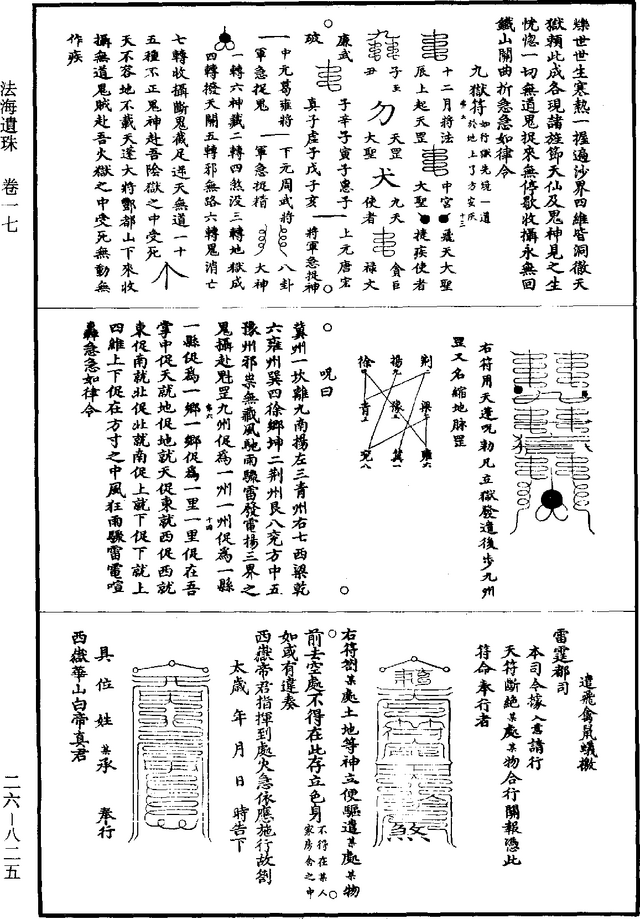 爍世世生寒熱一握遍沙界四維皆洞徹天
獄賴此成各現諸旌節天仙及鬼神見之生
恍惚一切無道鬼捉來無停歇收攝永無回
鐵山關曲折急急如律令
九獄符
十二月將法
中宮
飛天大聖
辰上起天罡
大聖
捷疾使者
子
天罡
九天
貪巨
丑
大聖
使者
祿文
廉武
子辛子寅子惠子
上元唐宏
破
真子虛子戊子亥
將軍急捉神
一中元葛雍將
一下元周武將
八卦
軍急捉鬼
軍急捉精
大神
一轉六神藏二轉四煞沒三轉地獄成
四轉撥天開五轉邪無路六轉鬼消亡
七轉收攝斷鬼藏足迷天無道一十
五種不正鬼神赴吾陰獄之中受死
天不容地不載天蓬大將酆都山下來收
攝無道鬼賊赴吾火獄之中受死無動無
作疾
法海遺珠 卷一七
右符用天蓬呪勑凡立獄發遣後步九州
罡又名縮地脉罡
荆二
梁
雍六
揚九
豫五
冀一
徐四
青三
兗八
呪曰
冀州一坎離九南揚左三青州右七西梁乾
六雍州巽四徐鄉坤二荆州艮八兗方中五
豫州邪祟無藏風馳雨驟雷發電揚三界之
鬼攝赴魁罡九州促為一州一州促為一縣
一縣促為一鄉一鄉促為一里一里促在吾
掌中促天就地促地就天促東就西促西就
東促南就北促北就南促上就下促下就上
四維上下促在方寸之中風狂雨驟雷電喧
轟急急如律令
遣飛禽鼠蟻檄
雷霆都司
本司今據入意請行
天符斷絶某處某物合行關報憑此
符命奉行者
煞
右符劄某處土地等神立便驅遣某處某物
前去空處不得在此存立色身不得在某人家房舍之中
如或有違奏
西嶽帝君指揮到處火急依應施行故劄
太歲 年 月 日 時告下
具位姓某承 奉行
西嶽華山白帝真君
二六—八二五